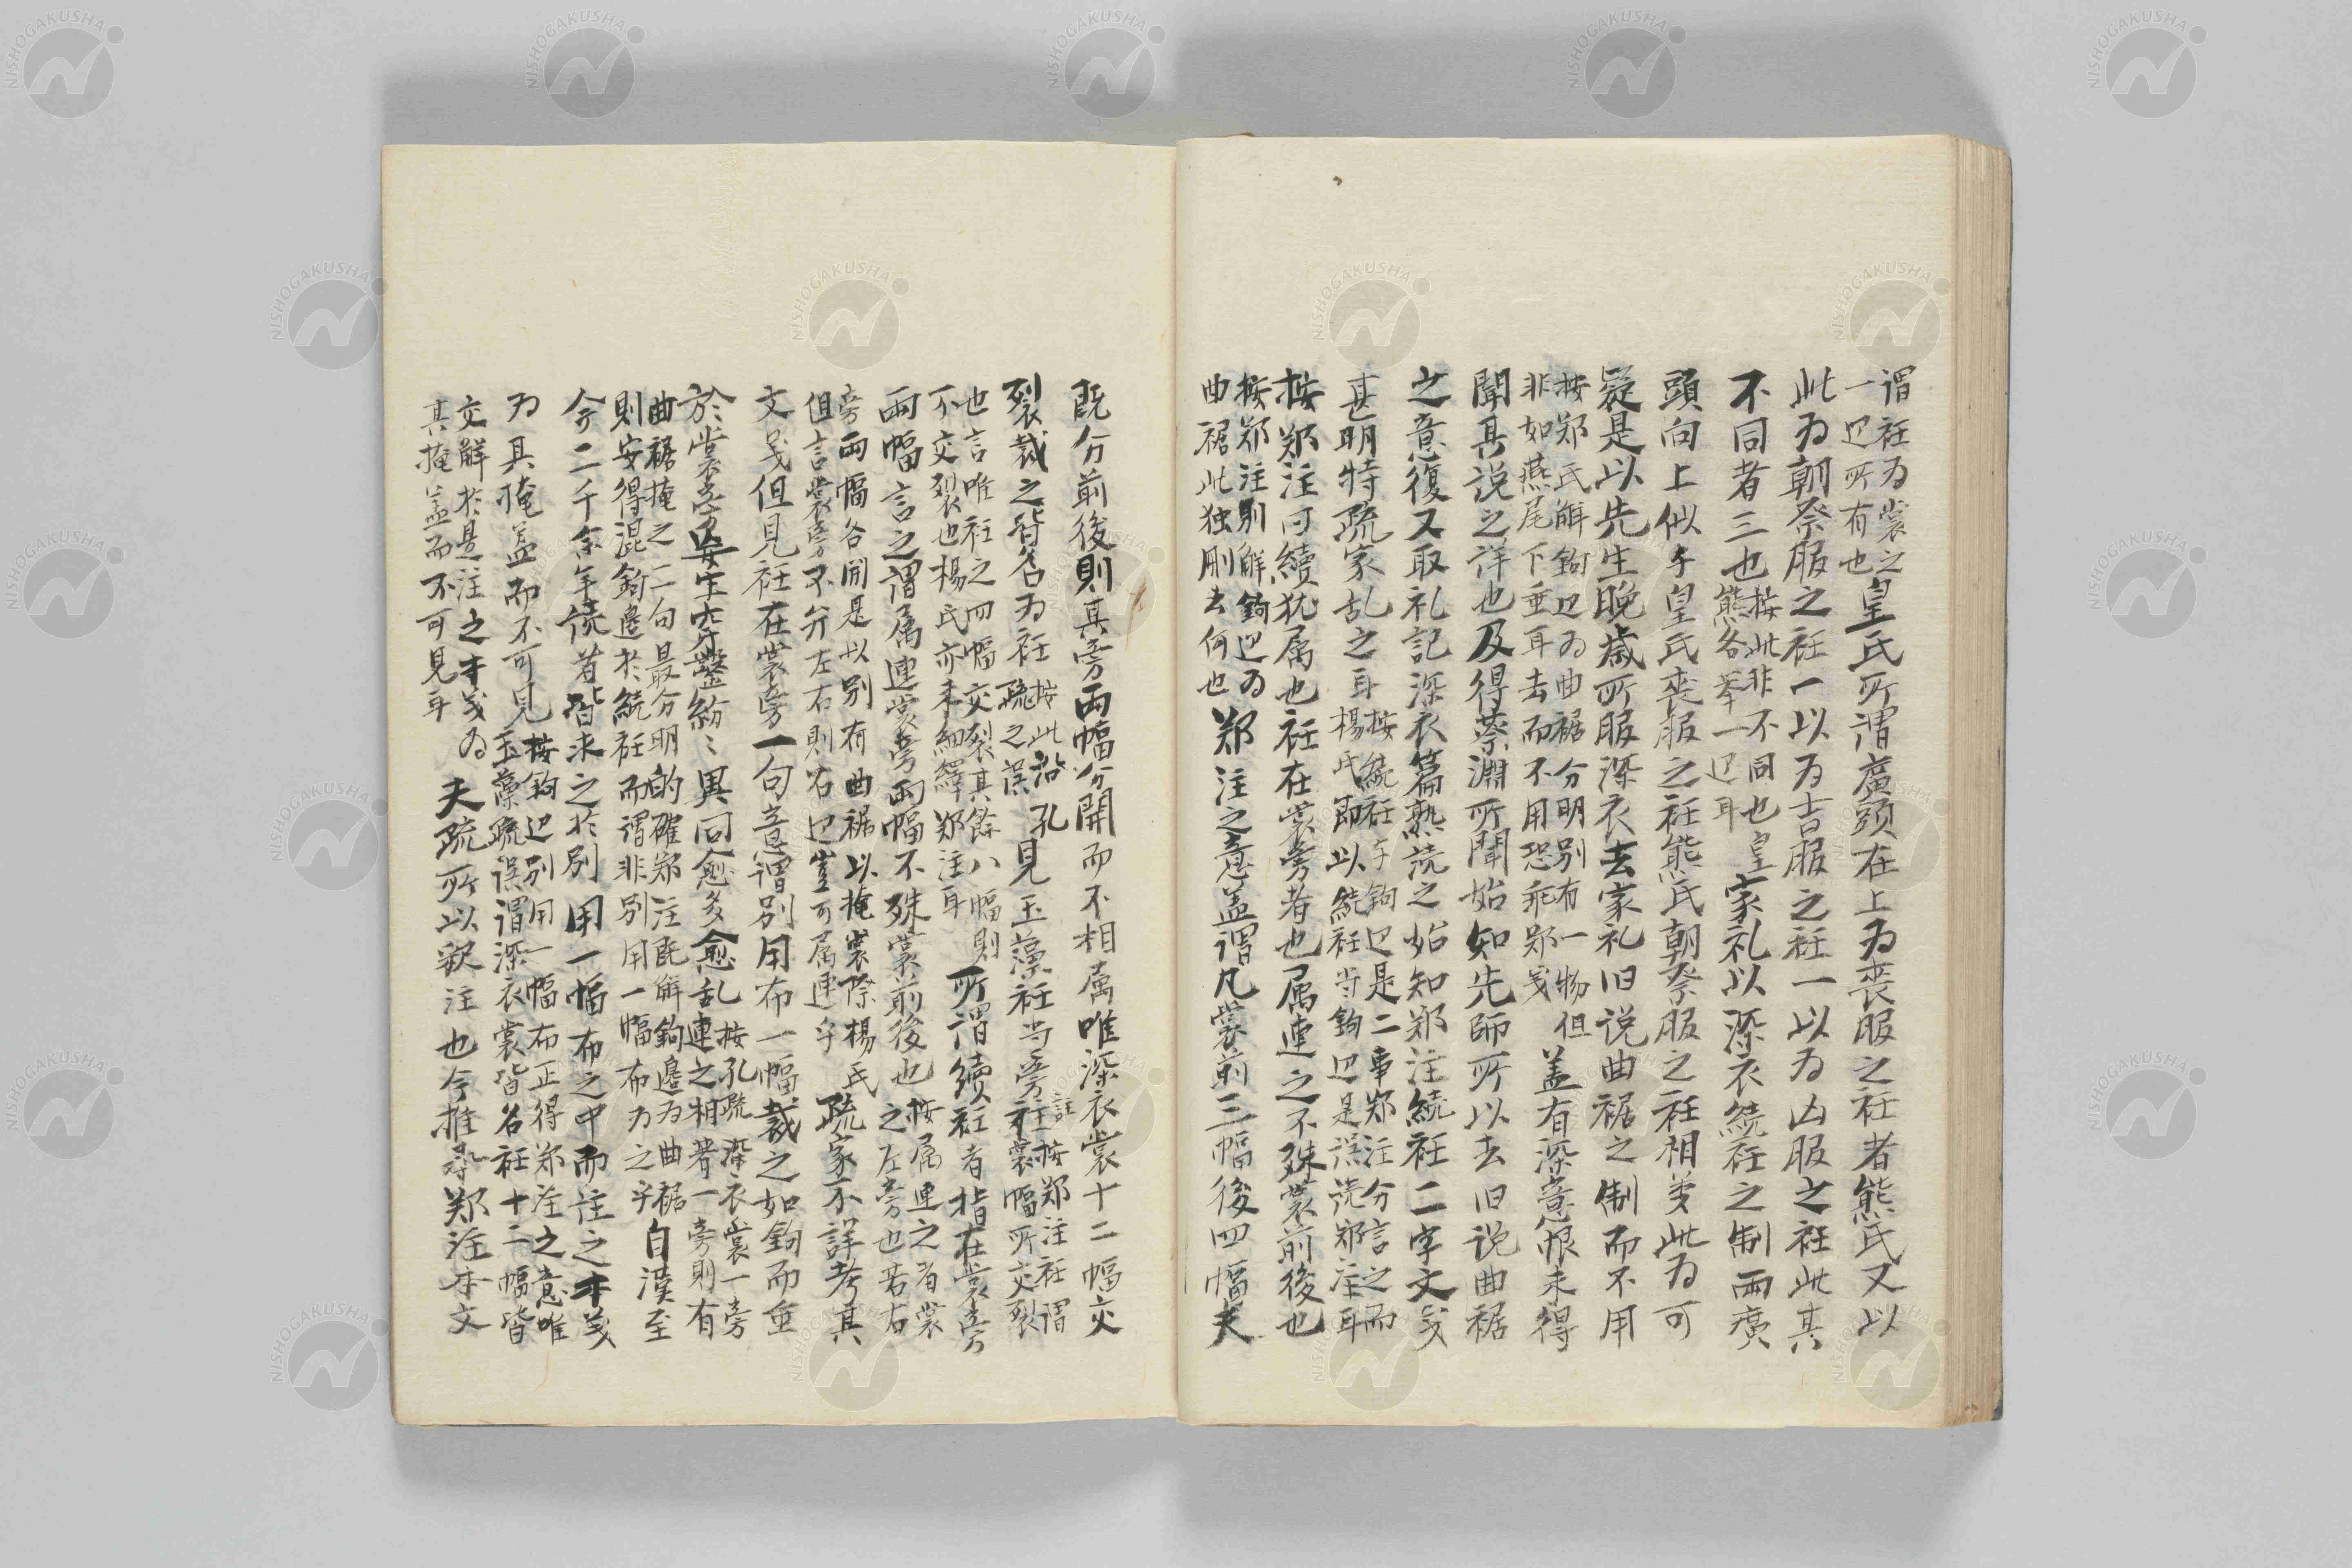 謂衽为裳之
一辺所有也
皇氏所謂廣頭在上为喪服之衽者熊氏又以
此为朝祭服之衽一以为吉服之衽一以为凶服之衽此其
不同者三也
按此非不同也皇
熊各挙一辺耳
家礼以深衣続衽之制两廣
頭向上似乎皇氏喪服之衽熊氏朝祭服之衽相类此为可
疑是以先生晚歳所服深衣去家礼旧说曲裾之制而不用
按郑氏解鉤辺为曲裾分明别有一物但
非如燕尾下垂耳去而不用恐乖郑义
盖有深意恨未得
聞其说之详也及得蔡淵所聞始知先師所以去旧说曲裾
之意復又取礼記深衣篇熟読之始知郑注続衽二字文义
甚明特疏家乱之耳
按続衽与鉤辺是二事郑注分言之而
楊氏即以続衽当鉤辺是误読郑注耳
按郑注曰續犹属也衽在裳旁者也属連之不殊裳前後也
按郑注别解鉤辺为
曲裾此独刪去何也
郑注之意盖謂凡裳前三幅後四幅夫
既分前後則其旁两幅分開而不相属唯深衣裳十二幅交
裂裁之皆名为衽
按此沿孔
疏之误
見玉藻衽当旁註
按郑注衽谓
裳幅所交裂
也言唯衽之四幅交裂其餘八幅則
不交裂也楊氏亦未細繹郑注耳
所谓續衽者指在裳旁
两幅言之謂属連裳旁两幅不殊裳前後也
按属連之者裳
之左旁也若右
旁两幅各開是以别有曲裾以掩裳際楊氏
但言裳旁不分左右則右辺豈可属連乎
疏家不詳考其
文义但見衽在裳旁一句意謂别用布一幅裁之如鉤而垂
於裳旁妄生穿鑿紛々異同愈多愈乱
按孔疏深衣裳一旁
連之相著一旁則有
曲裾掩之二句最分明的確郑注既解鉤邊为曲裾
則安得混鉤邊於続衽而谓非别用一幅布为之乎
自漢至
今二千余年読者皆求之於别用一幅布之中而注之本义
为其掩盖而不可見
按鉤辺别用一幅布正得郑注之意唯
玉藻疏误谓深衣裳皆名衽十二幅皆
交解於是注之本义为
其掩盖而不可見耳
夫疏所以釈注也今推尋郑注本文